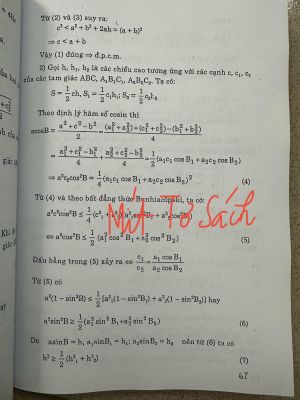 Từ (2) và (3) suy ra:
c² < a² + b² + 2ab = (a + b)²
⇒ c < a + b
Vậy (1) đúng ⇒ đ.p.c.m.
2) Gọi h, h₁, h₂ là các chiều cao tương ứng với các cạnh c, c₁, c₂
của các tam giác ABC, A₁B₁C₁, A₂B₂C₂. Ta có:
S = 1/2 ch, S₁ = 1/2 c₁h₁; S₂ = 1/2 c₂h₂
Theo định lý hàm số cosin thì:
accosB = (a² + c² − b²)/2 = ((a²₁ + a²₂) + (c²₁ + c²₂) − (b²₁ + b²₂))/4
= (a²₁ + c²₁ − b²₁)/4 + (a²₂ + c²₂ − b²₂)/4 = 1/2 (a₁c₁ cos B₁ + a₂c₂ cos B₂)
⇒ a²c²cos²B = 1/4 (a₁c₁ cos B₁ + a₂c₂ cos B₂)² (4)
Từ (4) và theo bất đẳng thức Bunhiacôpski, ta có:
a²c²cos²B ≤ 1/4 (c²₁ + c²₂)(a²₁cos²B₁ + a²₂cos²B₂)
Một Tủ Sách
⇔ a²cos²B ≤ 1/2 (a²₁ cos² B₁ + a²₂ cos² B₂) (5)
Dấu bằng trong (5) xảy ra ⇔ c₁/c₂ = a₁ cos B₁/a₂ cos B₂
Từ (5) có
a²(1 − sin²B) ≤ 1/2 [a²₁(1 − sin²B₁) + a²₂(1 − sin²B₂)] hay
a²sin²B ≥ 1/2 (a²₁ sin² B₁ + a²₂ sin² B₂) (6)
Do asinB = h, a₁sinB₁ = h₁; a₂sinB₂ = h₂ nên từ (6) ta có
h² ≥ 1/2 (h²₁ + h²₂) (7)
67